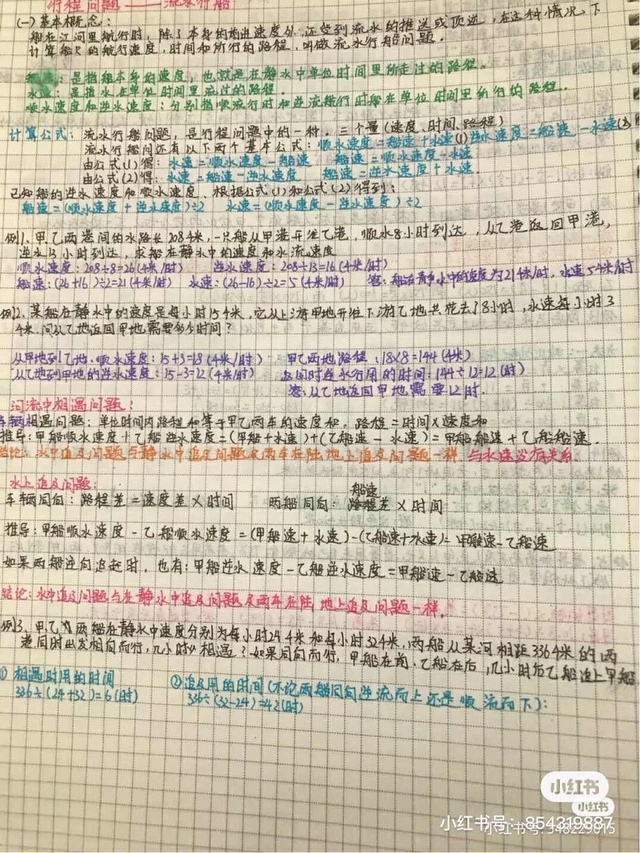 行程问题——流水行船
(一)基本概念:
船在江河里航行时，除了本身的前进速度外，还受到流水的推送或顶逆，在这种情况下
计算船只的航行速度，时间和所行的路程，叫做流水行船问题.
船速：是指船本身的速度，也就是在静水中单位时间里所走过的路程。
水速：是指水在单位时间里流过的路程.
顺水速度和逆水速度：分别指顺流航行时和逆流航行时船在单位时间里所行的路程.
计算公式：流水行船问题，是行程问题中的一种. 三个量(速度、时间、路程)
流水行船问还有以下两个基本公式：顺水速度=船速+水速(1) 逆水速度=船速-水速(2)
由公式(1)得：水速=顺水速度-船速 船速=顺水速度-水速
由公式(2)得：水速=船速-逆水速度 船速=逆水速度+水速.
已知船的逆水速度和顺水速度，根据公式(1)和公式(2)得到：
船速=(顺水速度+逆水速度)÷2 水速=(顺水速度-逆水速度)÷2
例1、甲乙两港间的水路长208千米，一只船从甲港开往乙港，顺水8小时到达，从乙港返回甲港，
逆水13小时到达，求船在静水中的速度和水流速度
顺水速度：208÷8=26(千米/时) 逆水速度：208÷13=16(千米/时)
船速：(26+16)÷2=21(千米/时) 水速：(26-16)÷2=5(千米/时) 答：船在静水中的速度为21千米/时，水速5千米/时
例2、某船在静水中的速度是每小时15千米，它从上游甲地开往下游乙地共花去了8小时，水速每小时3
千米，问从乙地返回甲地需要多少时间？
从甲地到乙地，顺水速度：15+3=18(千米/时) 甲乙两地路程：18×8=144(千米)
从乙地到甲地的逆水速度：15-3=12(千米/时) 返回时逆水行用的时间：144÷12=12(时)
答：从乙地返回甲地需要12时.
河流中相遇问题：
车辆相遇问题：单位时间内路程和等于甲乙两车的速度和，路程=时间×速度和
推导：甲船顺水速度+乙船逆水速度=(甲船+水速)+(乙船速-水速)=甲船船速+乙船船速.
结论：水中追及问题与静水中追及问题及两车在陆地上追及问题一样，与水速没有关系.
水上追及问题：
船速
车辆同向：路程差=速度差×时间 两船同向：路程差×时间
推导：甲船顺水速度-乙船顺水速度=(甲船速+水速)-(乙船速+水速)=甲船速-乙船速
如果两船逆向追赶时，也有：甲船逆水速度-乙船逆水速度=甲船速-乙船速
结论：水中追及问题与在静水中追及问题及两车在陆地上追及问题一样。
例3、甲乙两船在静水中速度分别为每小时24千米和每小时32千米，两船从某河相距336千米的两
港同时出发相向而行，几小时相遇？如果同向而行，甲船在前，乙船在后，几小时后乙船追上甲船
① 相遇时用的时间 ②追及用的时间(不论两船同向逆流而上还是顺流而下)：
336÷(24+32)=6(时) 336÷(32-24)=42(时)
小红书
小红书
小红书号：854319887